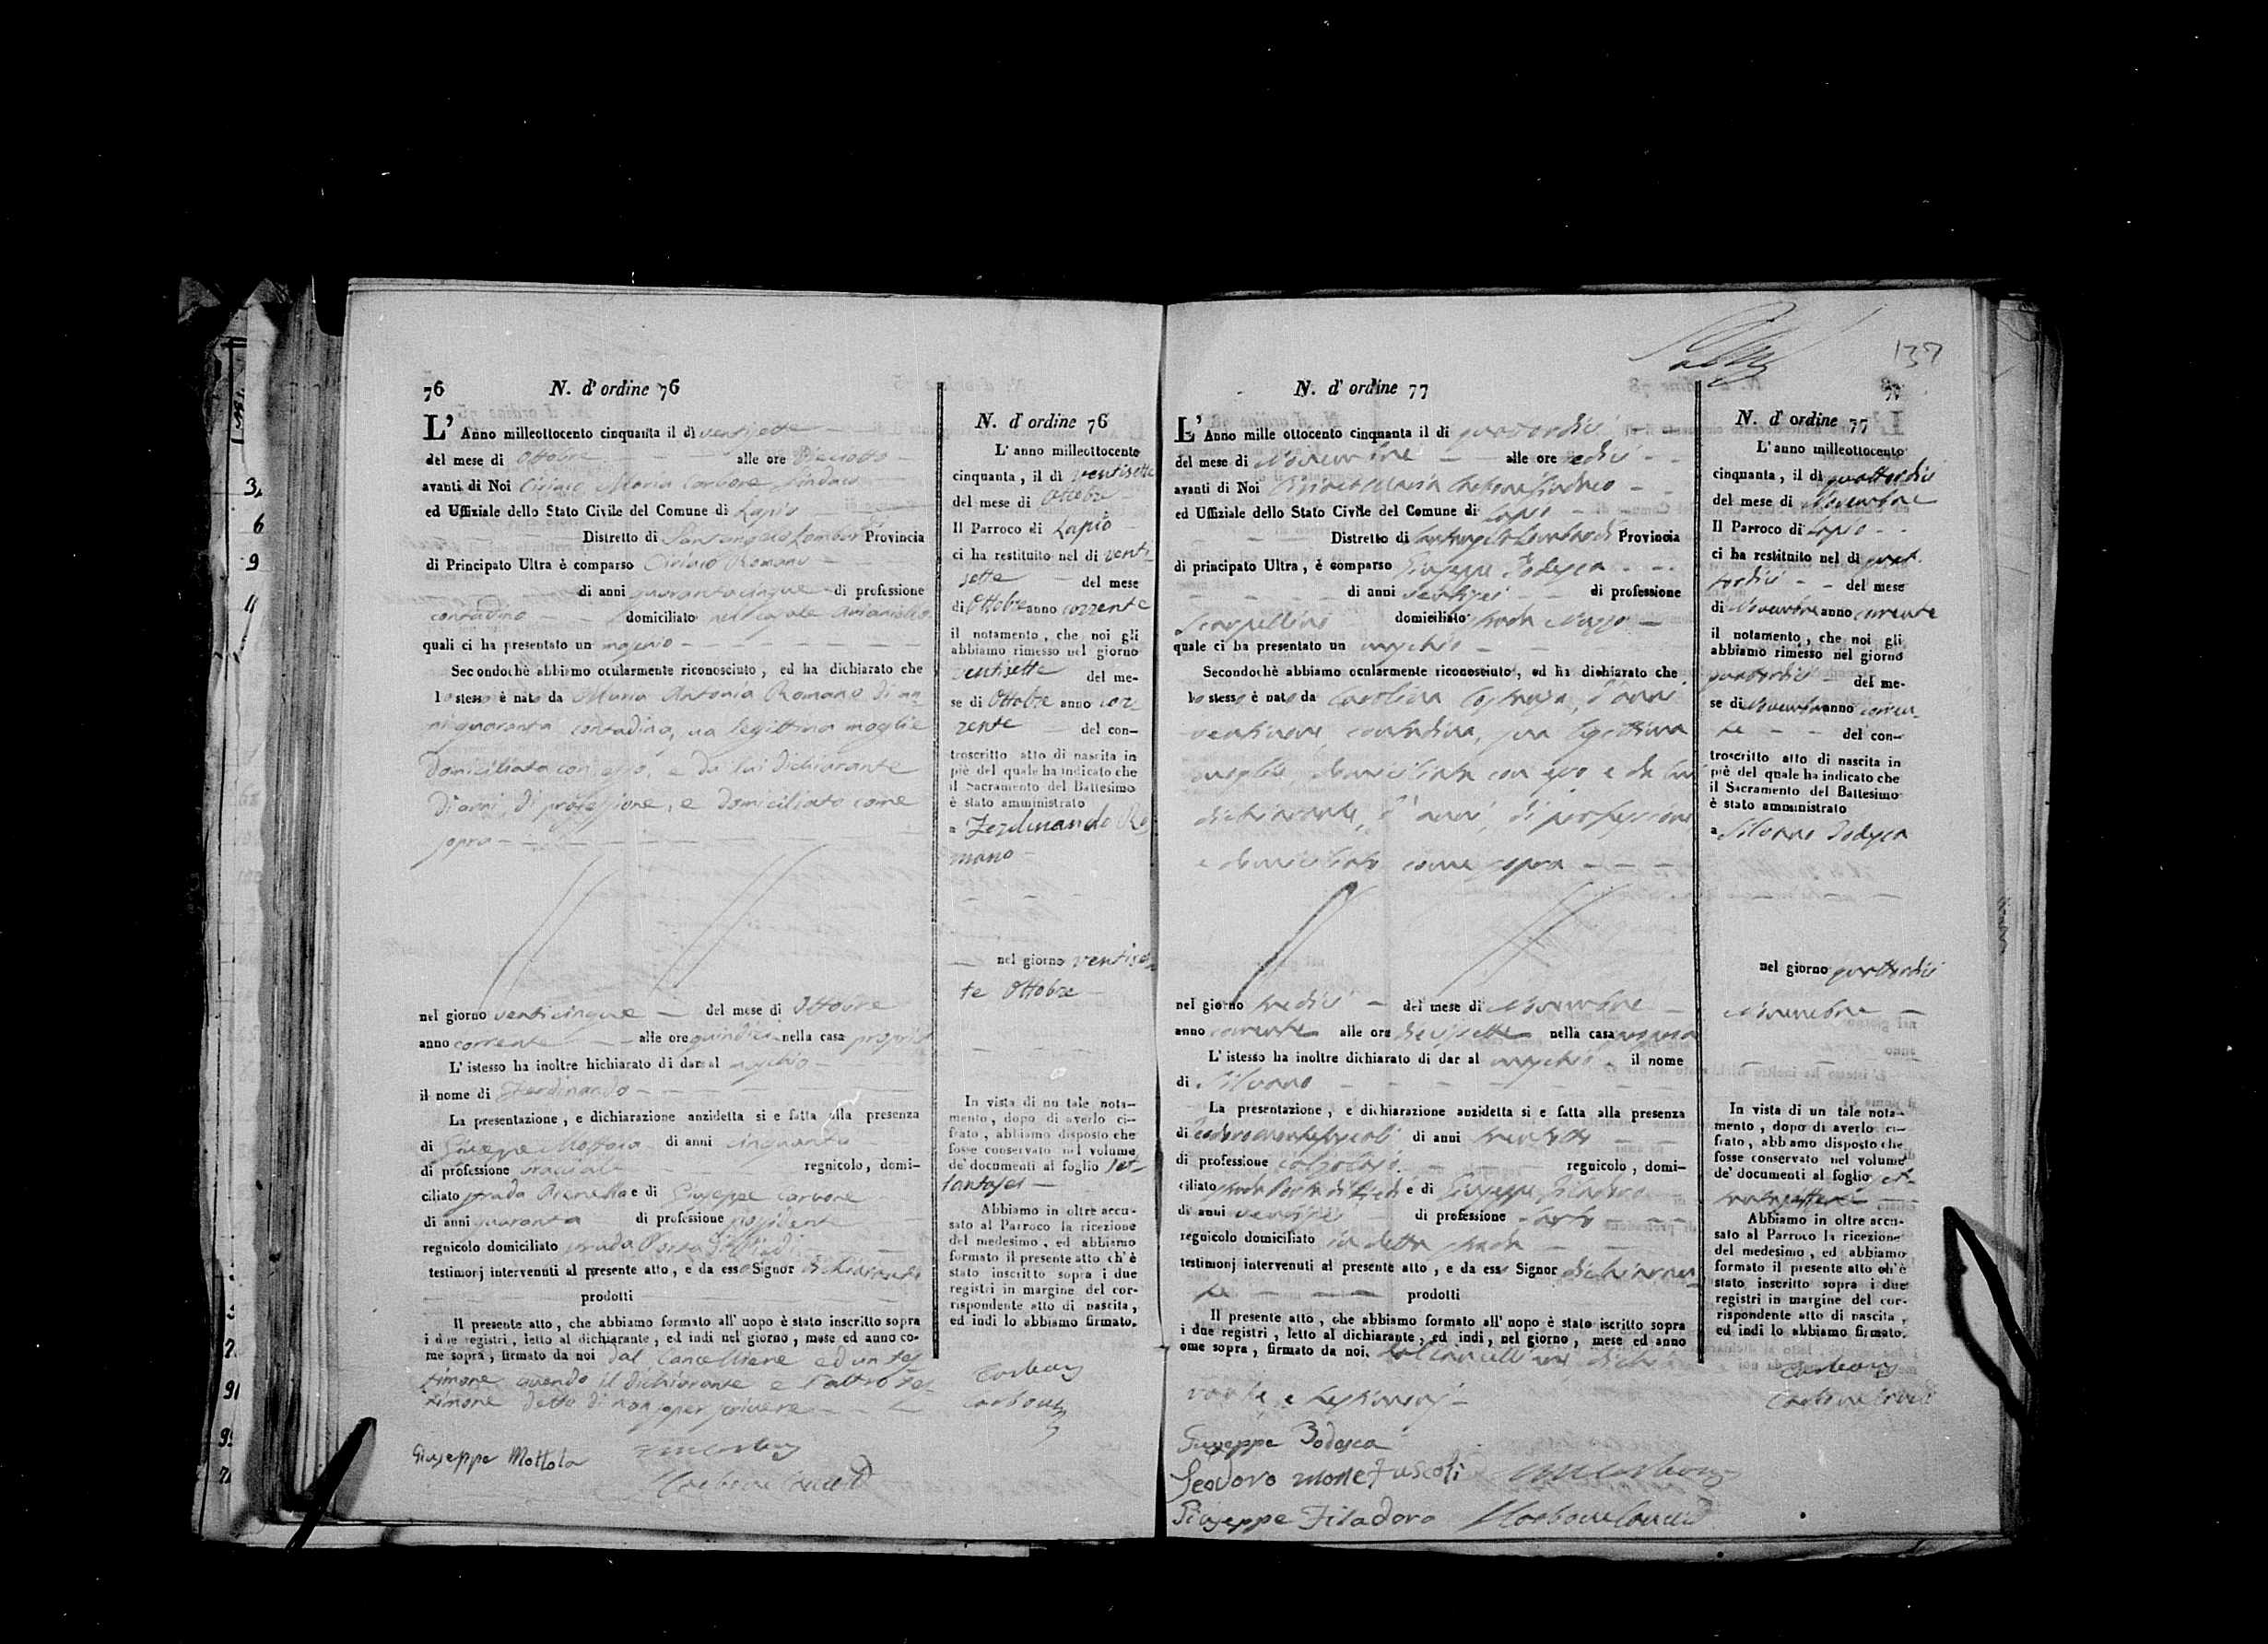 137
76
N. d' ordine 76
L' Anno milleottocento cinquanta il dì ventisette
del mese di Ottobre alle ore diciotto
avanti di Noi Ciriaco Maria Carbone Sindaco
ed Uffiziale dello Stato Civile del Comune di Lapio
Distretto di Santangelo Lombardi Provincia
di Principato Ultra è comparso Ciriaco Romano
di anni quarantacinque di professione
contadino domiciliato nel casale
quali ci ha presentato un maschio
Secondochè abbiamo ocularmente riconosciuto, ed ha dichiarato che
lo stesso è nato da Maria Antonia Romano di an-
ni quaranta contadina, sua legittima moglie
domiciliata con esso, e da lui dichiarante
di anni, di professione, e domiciliato come
sopra
nel giorno venticinque del mese di Ottobre
anno corrente alle ore quindici nella casa propria
L' istesso ha inoltre hichiarato di dar al maschio
il nome di Ferdinando
La presentazione, e dichiarazione anzidetta si e fatta alla presenza
di Giuseppe Mottola di anni cinquanta
di professione regnicolo, domi-
ciliato strada e di Giuseppe Carbone
di anni quaranta di professione possidente
regnicolo domiciliato strada Porta di Piedi
testimonj intervenuti al presente atto, e da esso Signor dichiarante
prodotti
Il presente atto, che abbiamo formato all' uopo è stato inscritto sopra
i due registri, letto al dichiarante, ed indi nel giorno, mese ed anno co-
me sopra, firmato da noi dal Cancelliere ed un tes
timone avendo il dichiarante e l'altro tes-
timone detto di non saper scrivere
Giuseppe Mottola
N. d' ordine 76
L' anno milleottocento
cinquanta, il dì ventisette
del mese di Ottobre
Il Parroco di Lapio
ci ha restituito nel di venti
sette del mese
di Ottobre anno corrente
il notamento, che noi gli
abbiamo rimesso nel giorno
ventisette del me-
se di Ottobre anno cor
rente del con-
troscritto atto di nascita in
piè del quale ha indicato che
il Sacramento del Battesimo
è stato amministrato
a Ferdinando Ro
mano
nel giorno ventiset-
te Ottobre
In vista di un tale nota-
mento, dopo di averlo ci-
frato, abbiamo disposto che
fosse conservato nel volume
de' documenti al foglio set-
tantasei
Abbiamo in oltre accu-
sato al Parroco la ricezione
del medesimo, ed abbiamo
formato il presente atto ch'è
stato inscritto sopra i due
registri in margine del cor-
rispondente atto di nascita,
ed indi lo abbiamo firmato.
Carbone
Carbone
77
N. d' ordine 77
L' Anno mille ottocento cinquanta il di quattordici
del mese di Novembre alle ore sedici
avanti di Noi Ciriaco Maria Carbone Sindaco
ed Uffiziale dello Stato Civile del Comune di Lapio
Distretto di Santangelo Lombardi Provincia
di principato Ultra, è comparso Giuseppe Todesca
di anni ventisei di professione
Scarpellino domiciliato strada
quale ci ha presentato un maschio
Secondochè abbiamo ocularmente riconosciuto, ed ha dichiarato che
lo stesso è nato da Carolina d'anni
ventinove, contadina, sua legittima
moglie, domiciliata con esso e da lui
dichiarante, d'anni, di professione
e domiciliato come sopra
nel giorno tredici del mese di Novembre
anno corrente alle ore diecisette nella casa propria
L' istesso ha inoltre dichiarato di dar al maschio il nome
di Silvano
La presentazione, e dichiarazione anzidetta si e fatta alla presenza
di Teodoro Montefuscoli di anni trentotto
di professione calzolajo regnicolo, domi-
ciliato strada Porta di Piedi e di Giuseppe Filadoro
di anni ventisei di professione sarto
regnicolo domiciliato in detta strada
testimonj intervenuti al presente atto, e da esso Signor dichiaran-
te prodotti
Il presente atto, che abbiamo formato all' uopo è stato iscritto sopra
i due registri, letto al dichiarante, ed indi, nel giorno, mese ed anno
ome sopra, firmato da noi, dal Cancelliere, dichia
rante e testimonj
Giuseppe Todesca
Teodoro Montefuscoli
Giuseppe Filadoro
N. d' ordine 77
L' anno milleottocento
cinquanta, il dì quattordici
del mese di Novembre
Il Parroco di Lapio
ci ha restituito nel dì quat-
tordici del mese
di Novembre anno corrente
il notamento, che noi gli
abbiamo rimesso nel giorno
quattordici del me-
se di Novembre anno corren-
te del con-
troscritto atto di nascita in
piè del quale ha indicato che
il Sacramento del Battesimo
è stato amministrato
a Silvano Todesca
nel giorno quattordici
Novembre
In vista di un tale nota-
mento, dopo di averlo ci-
frato, abbiamo disposto che
fosse conservato nel volume
de' documenti al foglio set-
tantasette
Abbiamo in oltre accu-
sato al Parroco la ricezione
del medesimo, ed abbiamo
formato il presente atto ch'è
stato inscritto sopra i due
registri in margine del cor-
rispondente atto di nascita,
ed indi lo abbiamo firmato.
Carbone
Carbone